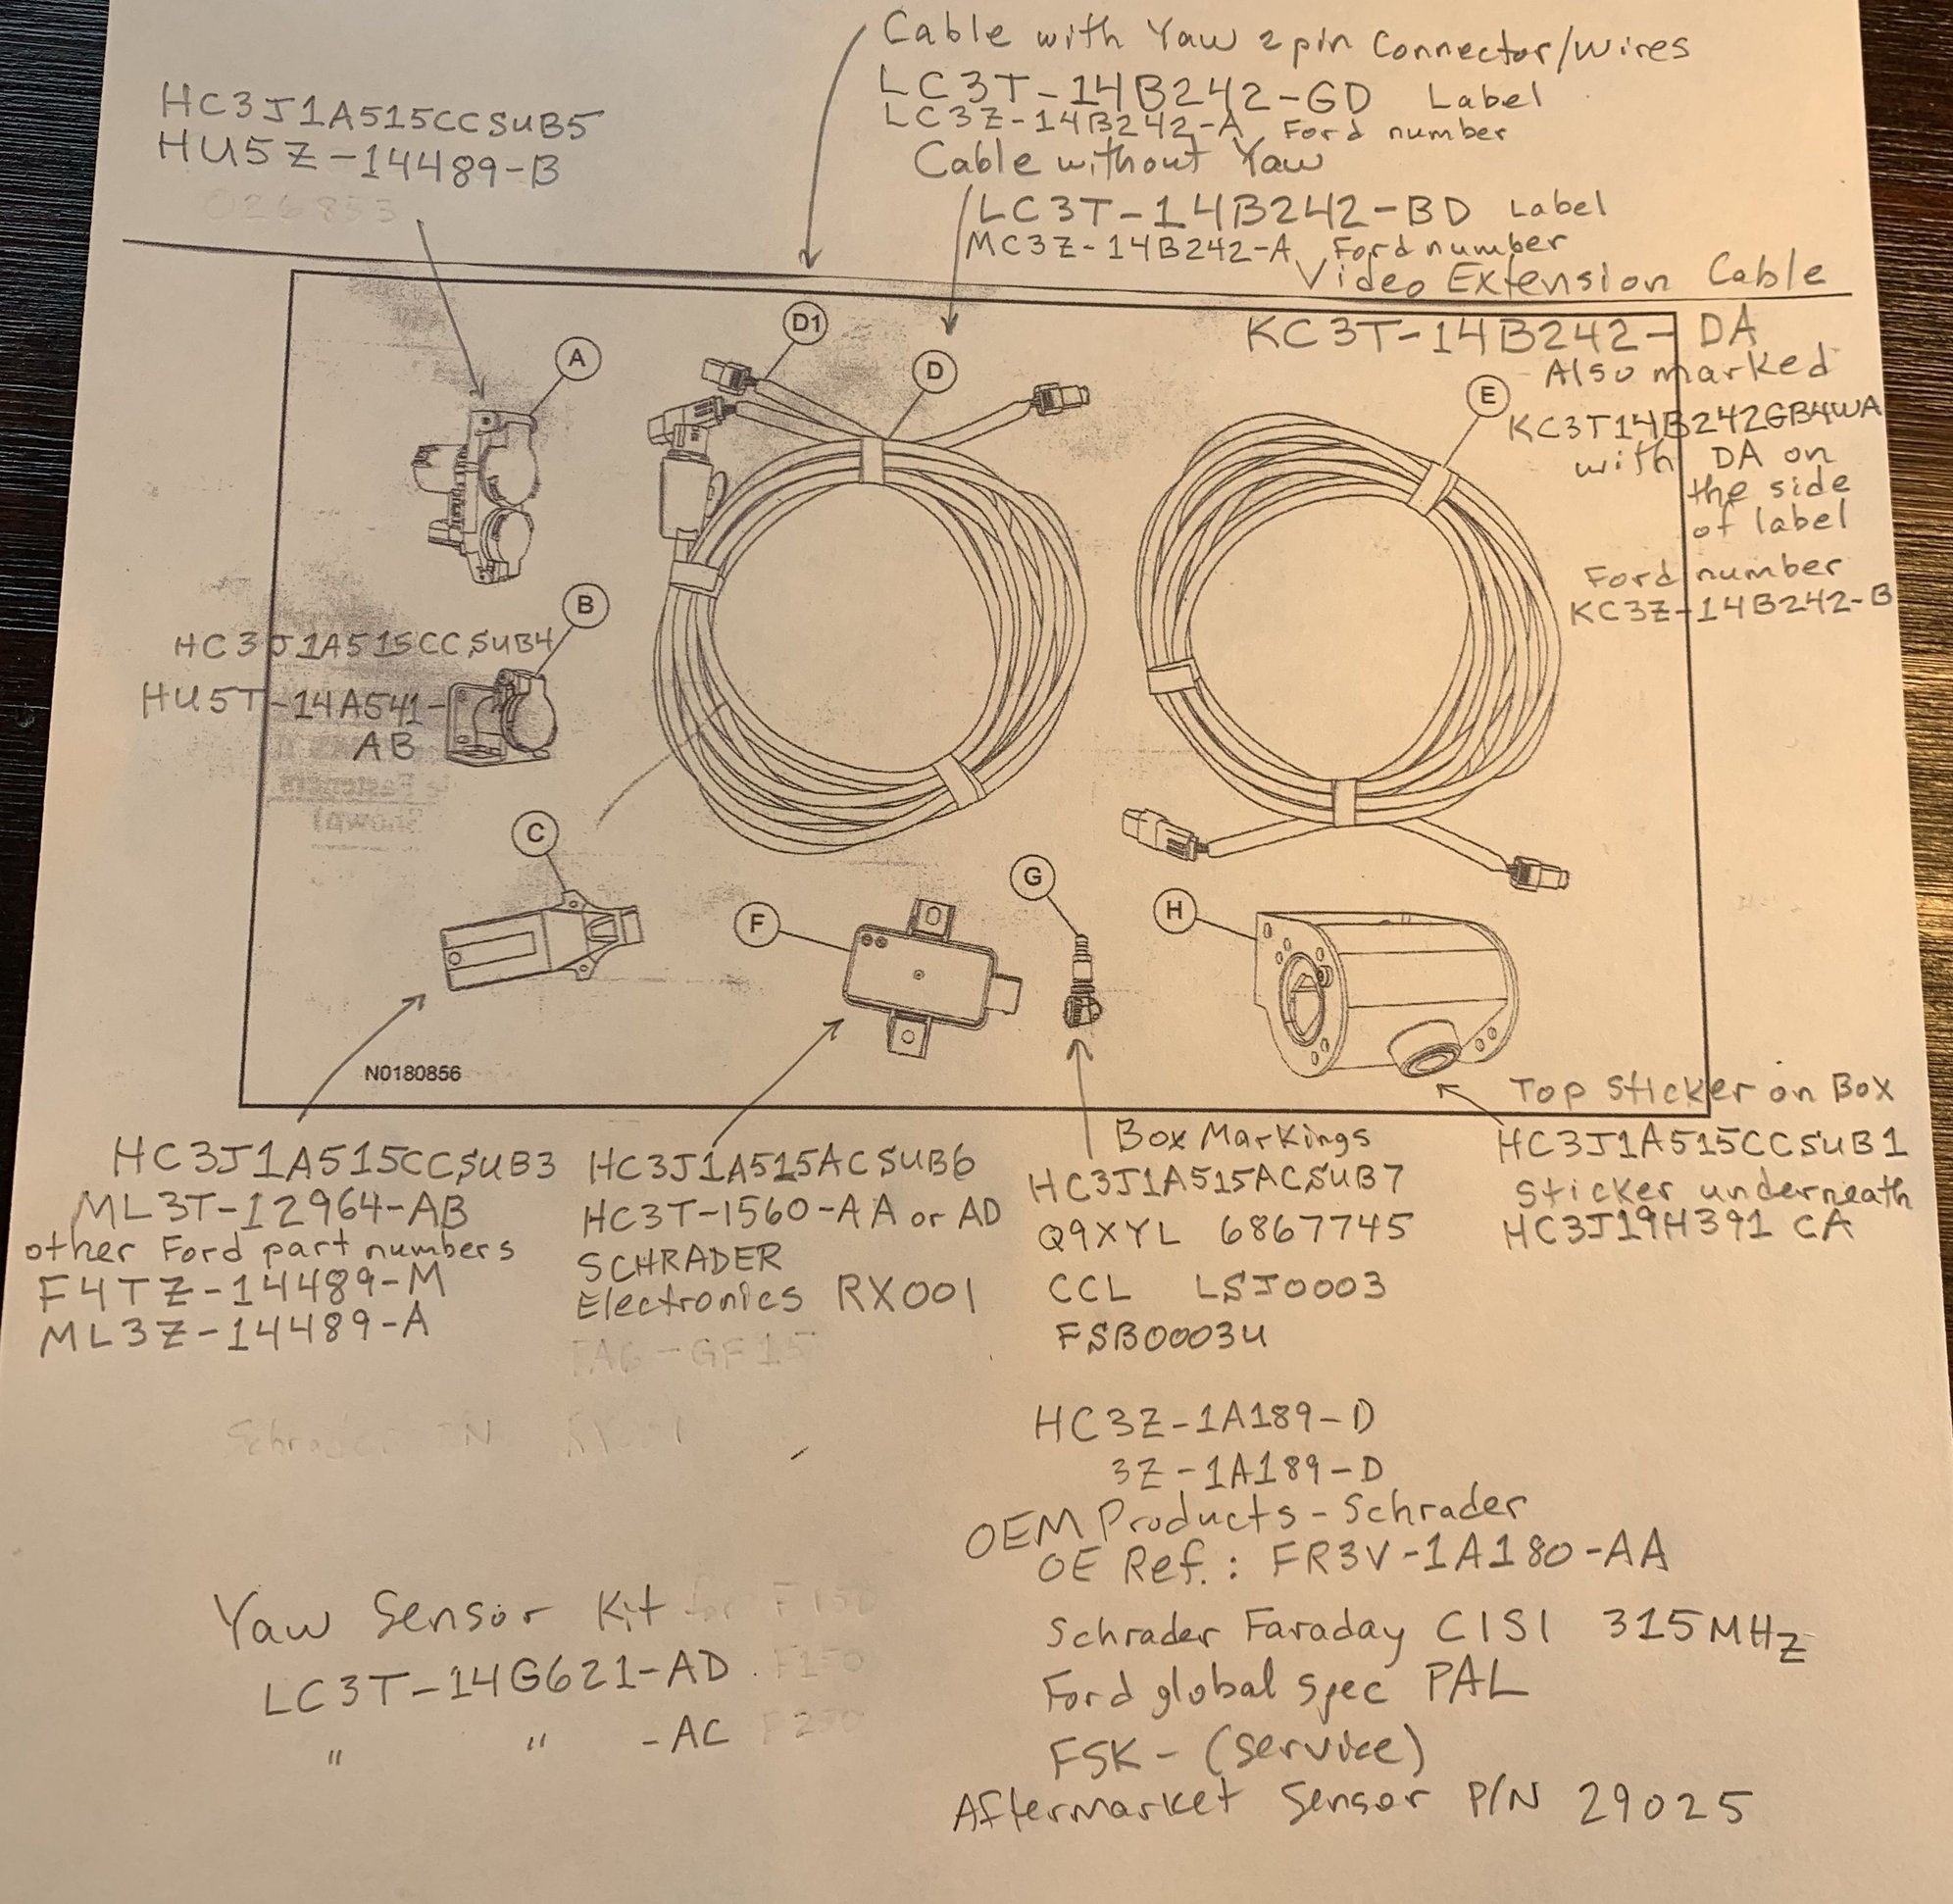 Cable with Yaw 2pin Connector/wires
LC3T-14B242-GD Label
LC3Z-14B242-A Ford number
Cable without Yaw
LC3T-14B242-BD Label
MC3Z-14B242-A Ford number
Video Extension Cable
KC3T-14B242-DA
Also marked
KC3T14B242GB4WA
with DA on
the side
of label
Ford number
KC3Z-14B242-B
HC3J1A515CCSUB5
HU5Z-14489-B
026853
A
D1
D
E
B
HC3J1A515CCSUB4
HU5T-14A541-
AB
C
F
G
H
N0180856
HC3J1A515CCSUB3
ML3T-12964-AB
other Ford part numbers
F4TZ-14489-M
ML3Z-14489-A
HC3J1A515ACSUB6
HC3T-1560-AA or AD
SCHRADER
Electronics RX001
TAG-GF15
Box Markings
HC3J1A515ACSUB7
Q9XYL 6867745
CCL LSJ0003
FSB0003U
HC3Z-1A189-D
3Z-1A189-D
OEM Products-Schrader
OE Ref.: FR3V-1A180-AA
Schrader Faraday CISI 315MHz
Ford global spec PAL
FSK-(service)
Aftermarket Sensor P/N 29025
Top Sticker on Box
HC3J1A515CCSUB1
Sticker underneath
HC3J19H391 CA
Yaw Sensor Kit for F150
LC3T-14G621-AD. F150
" " -AC F250